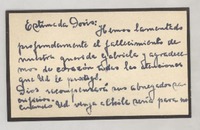 Estimada Doris:
Hemos lamentado
profundamente el fallecimiento de
nuestra querida Gabriela y agradece-
mos de corazón todas las atenciones
que Ud le prodigó.
Dios recompensará sus abnegados
cuando Ud venga a Chile será para no